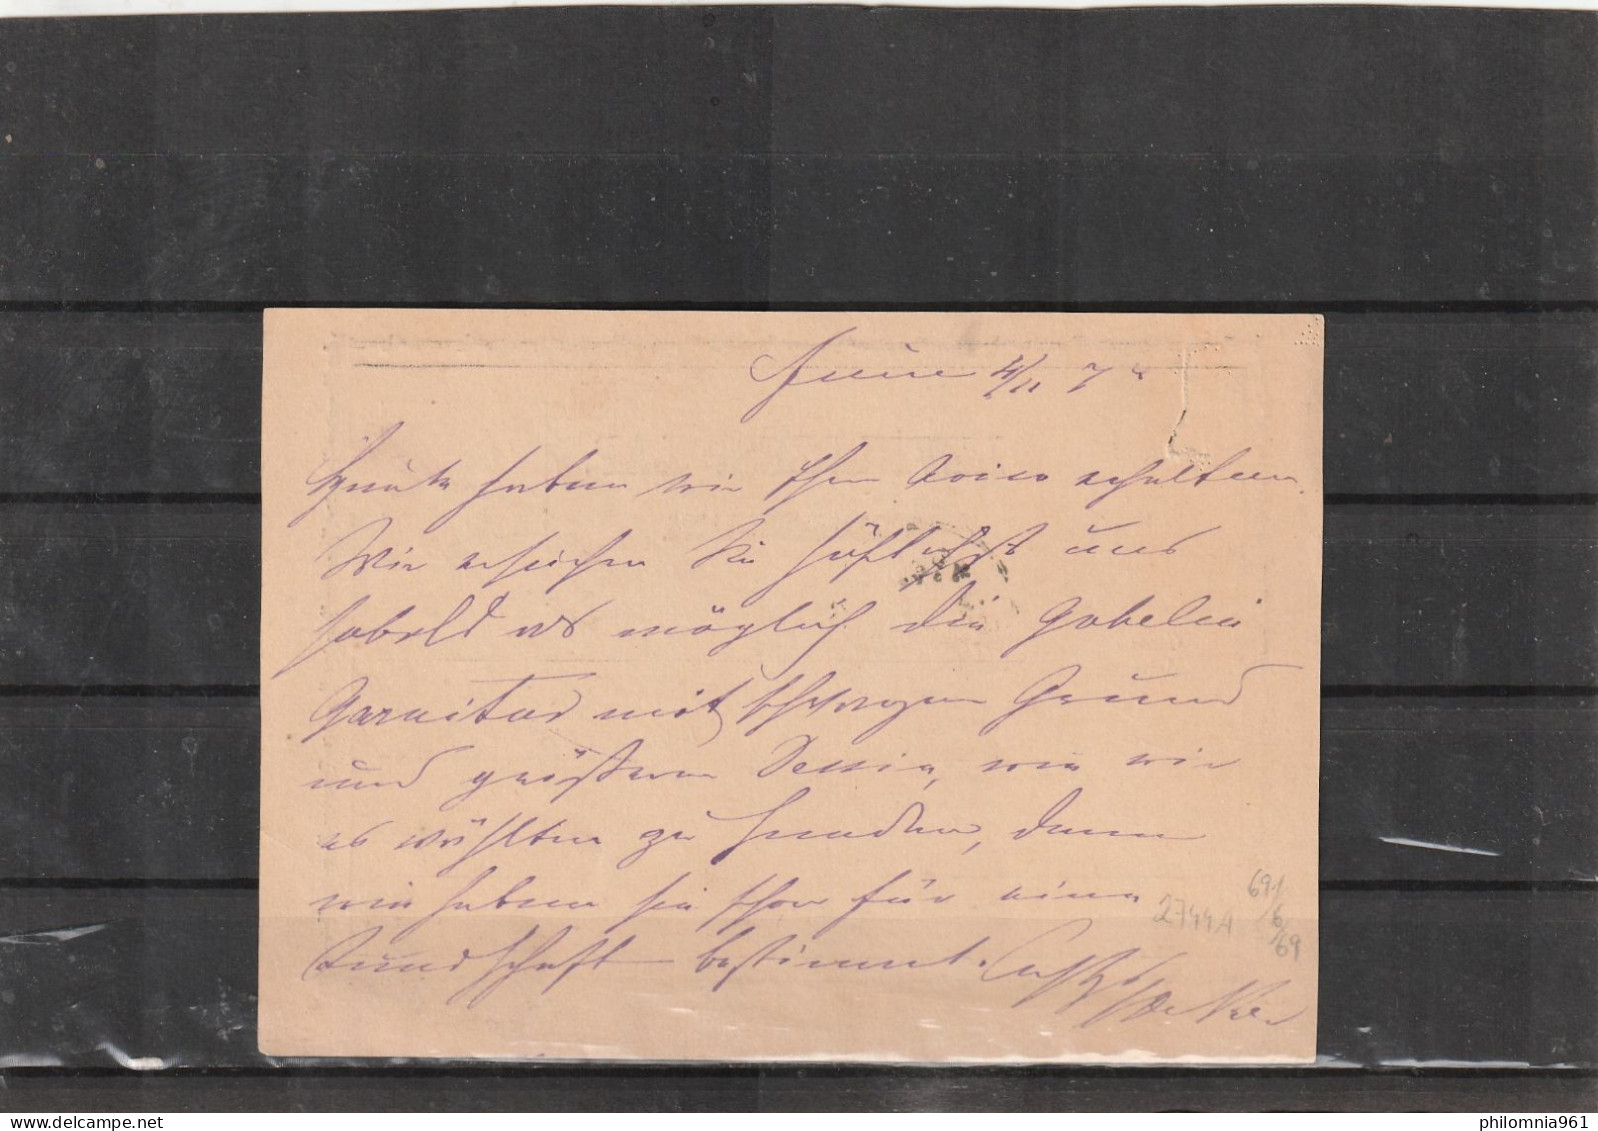 Fiume 4/11 7
Heute haben wir Ihr Aviso erhalten.
Wir ersuchen Sie höflichst uns
sobald als möglich die Gobelin
Garnitur mit schwarzem Grund
und größerem Dessin, wie wir
es wählten zu senden, denn
wir haben sie schon für eine
Kundschaft bestimmt.
2744A
691
/6/69
philomnia961